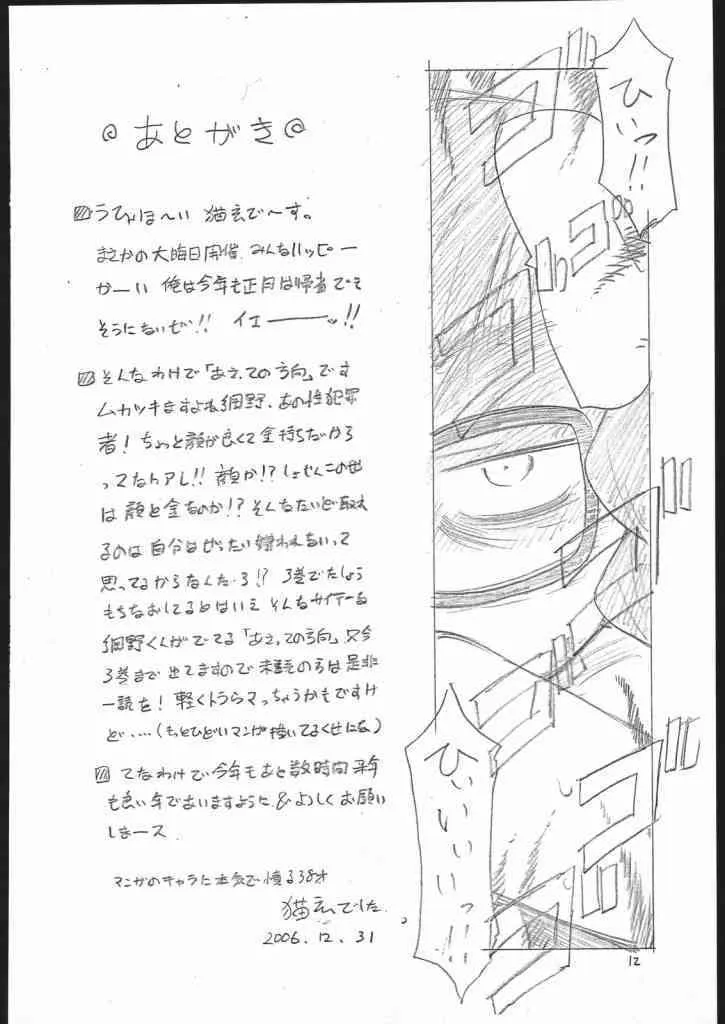 あとがき
うひょほ〜い 猫玄で〜す。
まさかの大晦日開催、みんなハッピー
かーい 俺は今年も正月は帰省でき
そうにないぜ!! イエーーー!!
そんなわけで「あさっての方向」です
ムカツキますよね網野、あの性犯罪
者! ちょっと顔が良くて金持ちだから
ってなんアレ!! 顔か!? しょせんこの世
は顔と金なのか!? そんなたいど取れ
るのは自分はぜったい嫌われないって
思ってるからなんだろ!? 3巻でたしょう
もちなおしてるとはいえ そんなサイテーな
網野くんがでてる「あさっての方向」只今
3巻まで出てますので未読の方は是非
一読を! 軽くトラウマっちゃうかもですけ
ど・・・・(もっとひどいマンガ描いてるくせにな)
てなわけで今年もあと数時間 来年
も良い年でありますように & よろしくお願い
しまース
マンガのキャラに本気で憤る38才
猫玄でした。
2006.12.31
ひいっ!!
ひいいいいっ!!
12